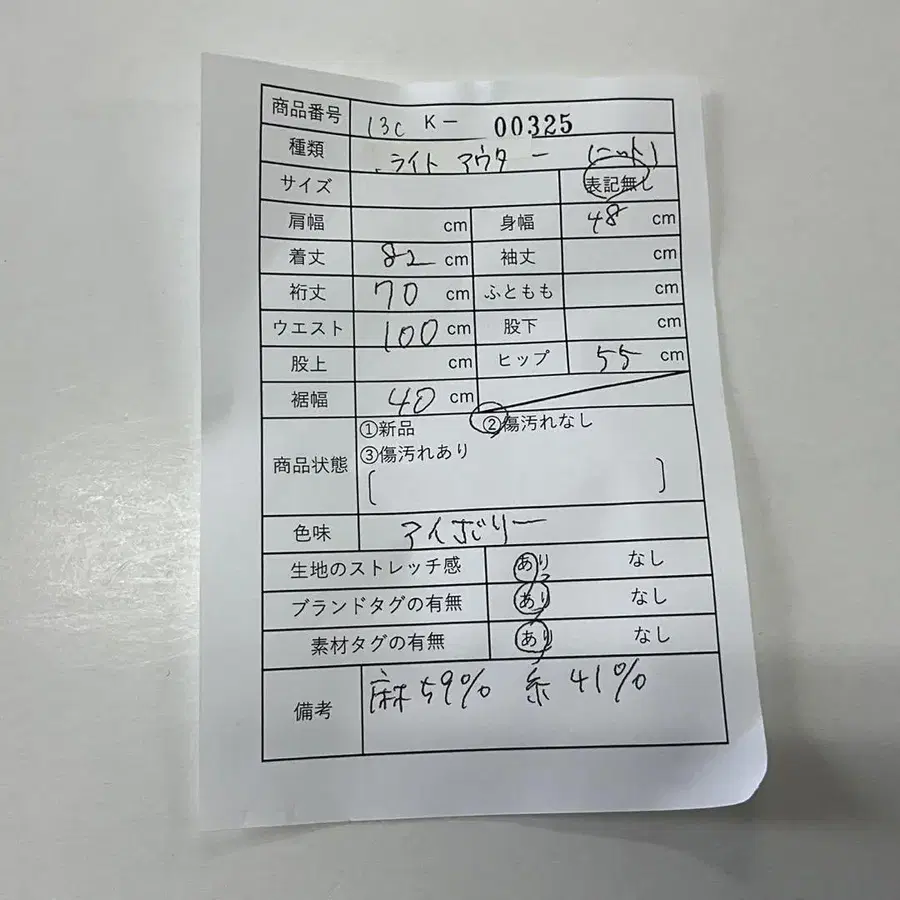 商品番号 13C K- 00325
種類 ライトアウター (ニット)
サイズ 表記無し
肩幅 cm 身幅 48 cm
着丈 82 cm 袖丈 cm
裄丈 70 cm ふともも cm
ウエスト 100 cm 股下 cm
股上 cm ヒップ 55 cm
裾幅 40 cm
商品状態 ①新品 ②傷汚れなし
③傷汚れあり
[ ]
色味 アイボリー
生地のストレッチ感 あり なし
ブランドタグの有無 あり なし
素材タグの有無 あり なし
備考 麻59% 糸41%